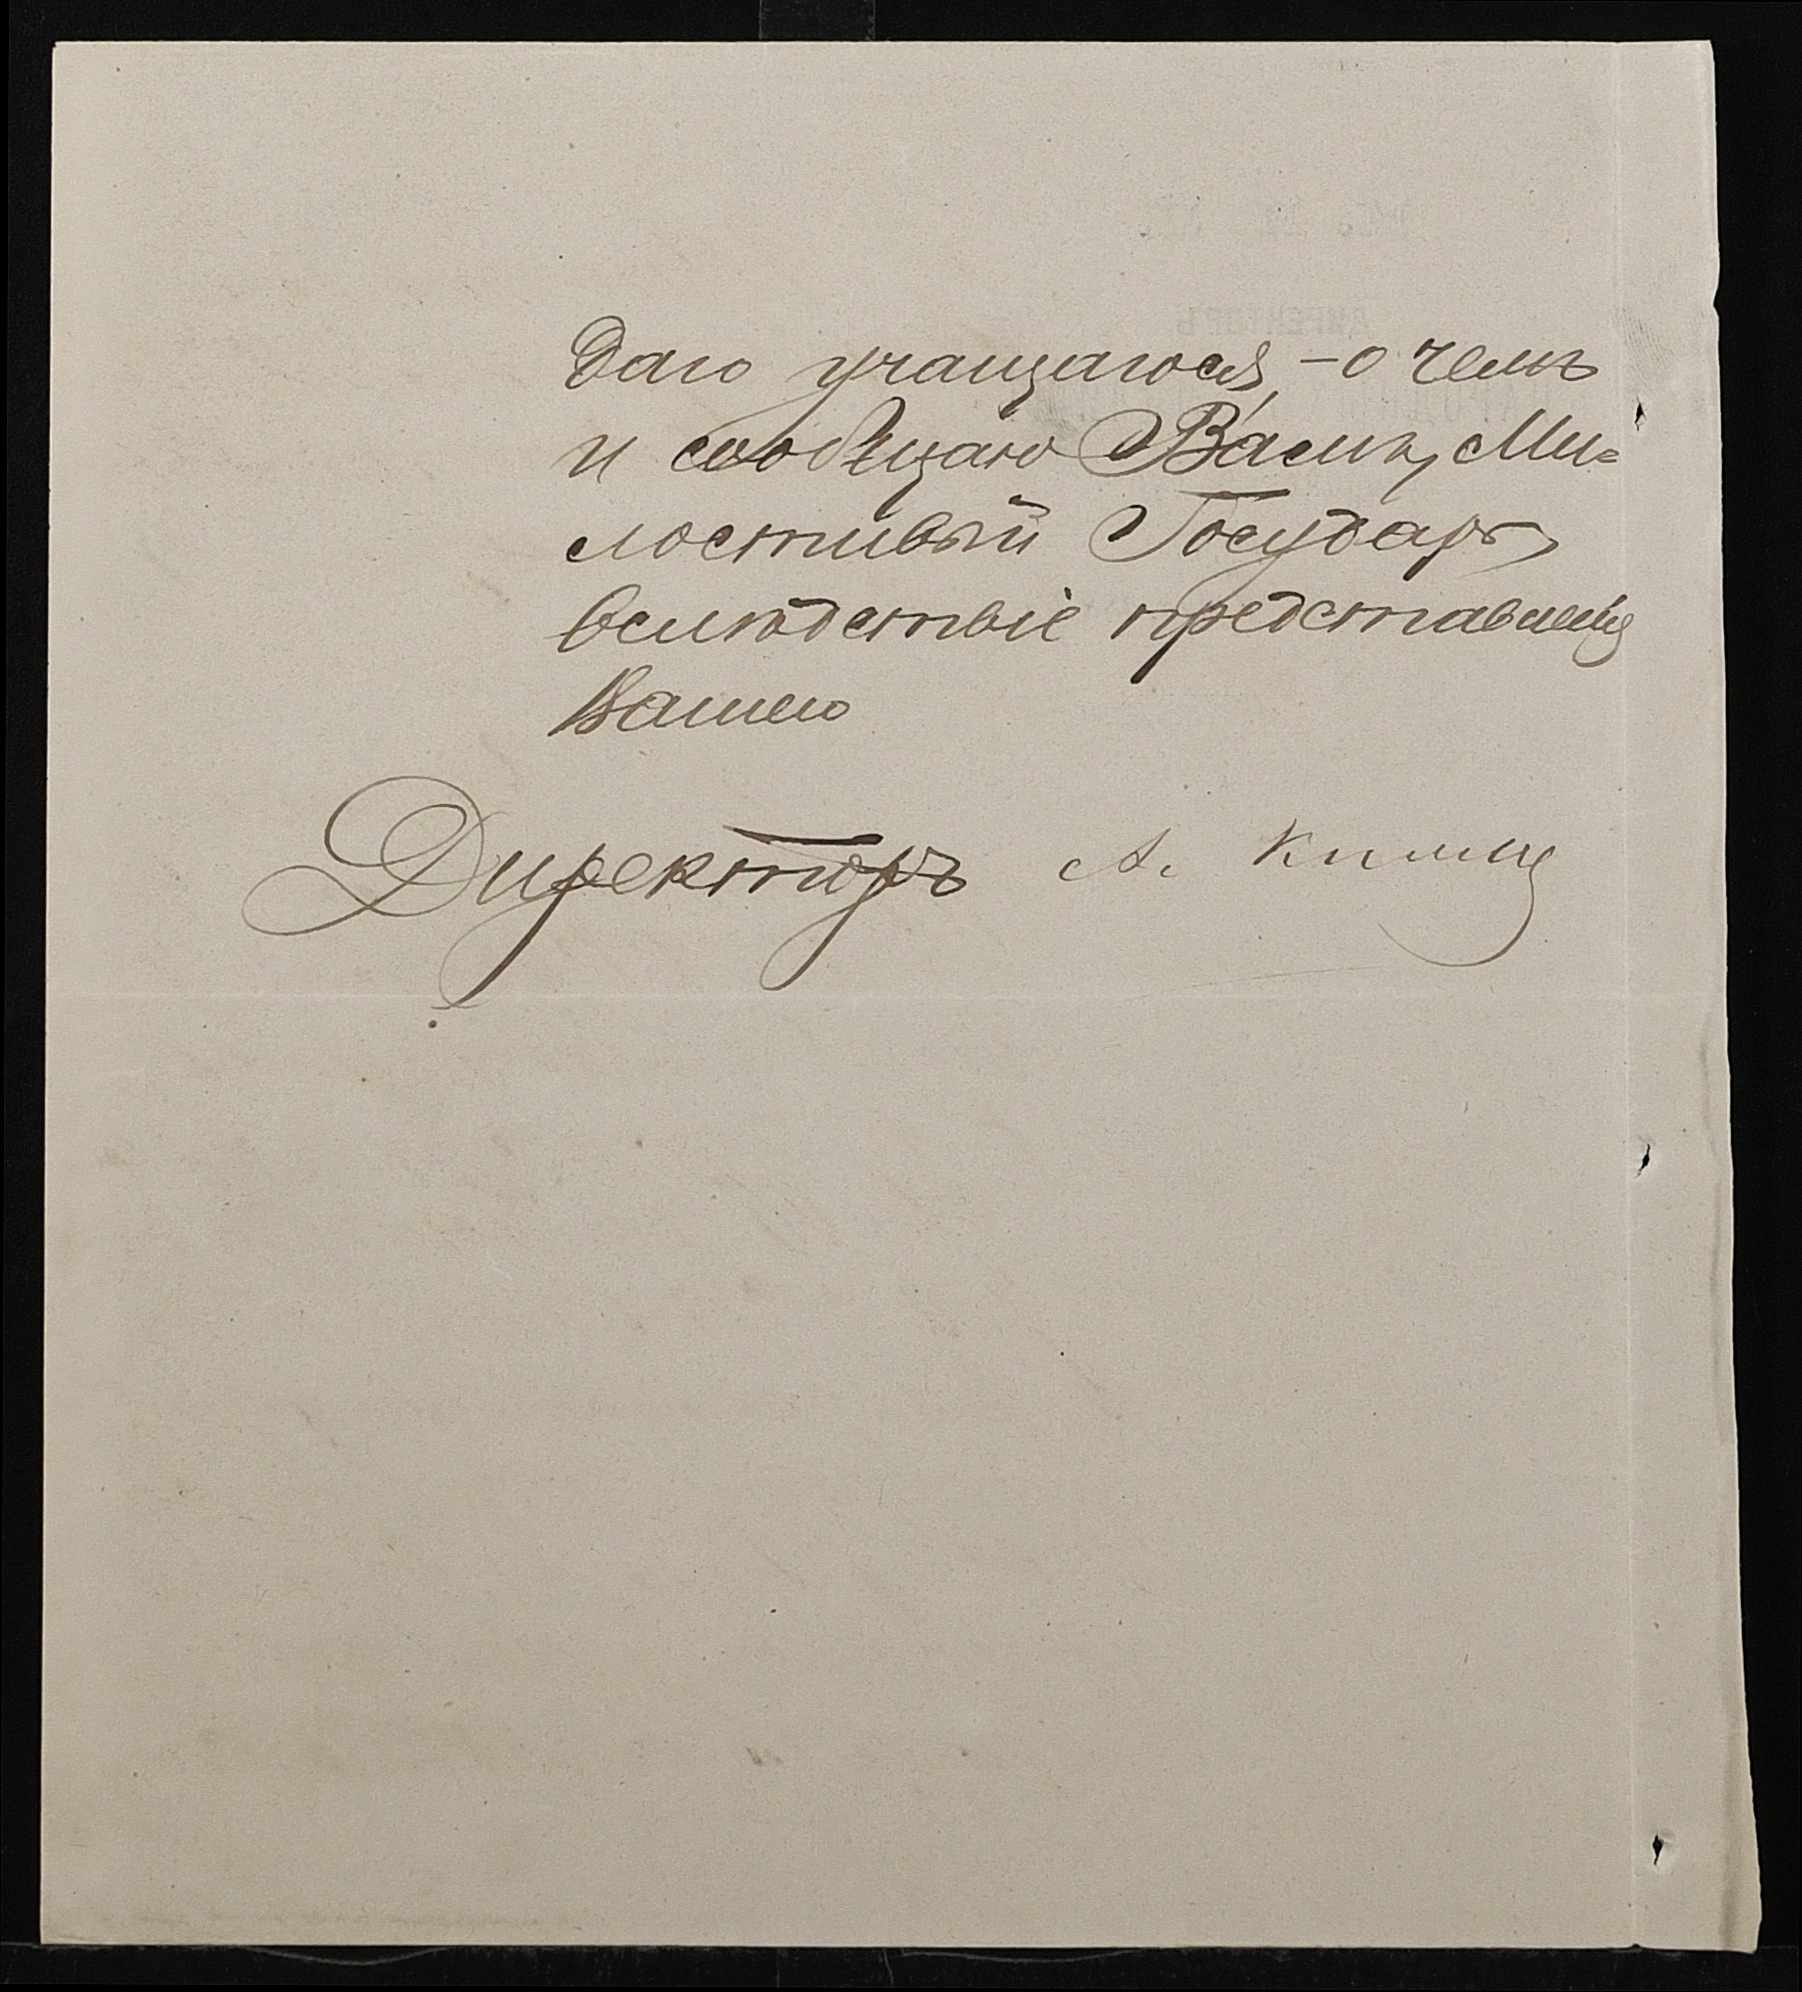 даго учащагося, – о чемъ
и сообщаю Вамъ, Ми=
лостивый Государь,
вслѣдствіе представленія
Вашего
Директоръ А.